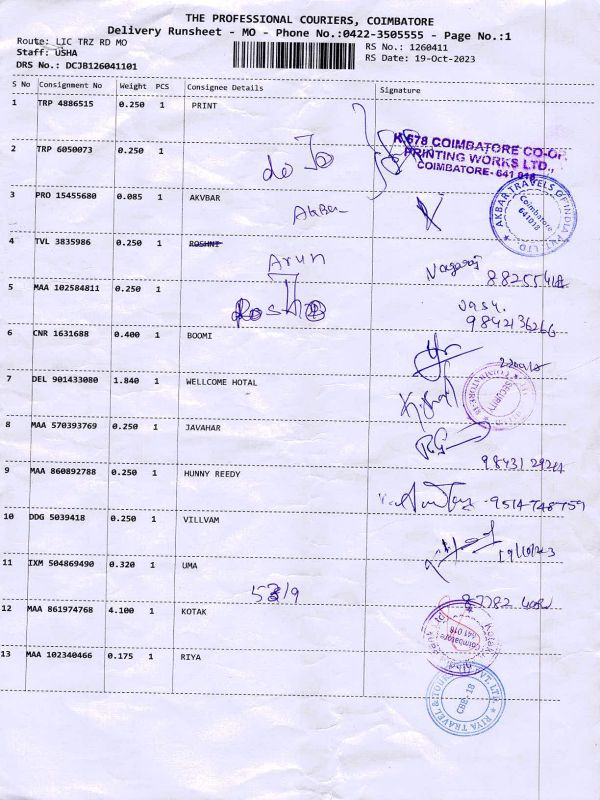 THE PROFESSIONAL COURIERS, COIMBATORE
Delivery Runsheet - MO - Phone No.:0422-3505555 - Page No.:1
Route: LIC TRZ RD MO
RS No.: 1260411
Staff: USHA
RS Date: 19-Oct-2023
DRS No.: DCJB126041101
S No Consignment No Weight PCS Consignee Details Signature
1 TRP 4886515 0.250 1 PRINT
K 678 COIMBATORE CO-OP.
PRINTING WORKS LTD.,
COIMBATORE-641 018
2 TRP 6050073 0.250 1
do
3 PRO 15455680 0.085 1 AKVBAR
Akbar
AKBAR TRAVELS OF INDIA PVT. LTD.
Coimbatore
641018
4 TVL 3835986 0.250 1 ROSHNI
Arun
Nagaraj
5 MAA 102584811 0.250 1
6 CNR 1631688 0.400 1 BOOMI
7 DEL 901433080 1.840 1 WELLCOME HOTAL
SECURITY
8 MAA 570393769 0.250 1 JAVAHAR
9 MAA 860892788 0.250 1 HUNNY REEDY
9514748759
10 DDG 5039418 0.250 1 VILLVAM
19/10/2023
11 IXM 504869490 0.320 1 UMA
12 MAA 861974768 4.100 1 KOTAK
Kotak
Coimbatore
641 018
13 MAA 102340466 0.175 1 RIYA
RIYA TRAVEL & TOURS PVT. LTD.
CBE-18